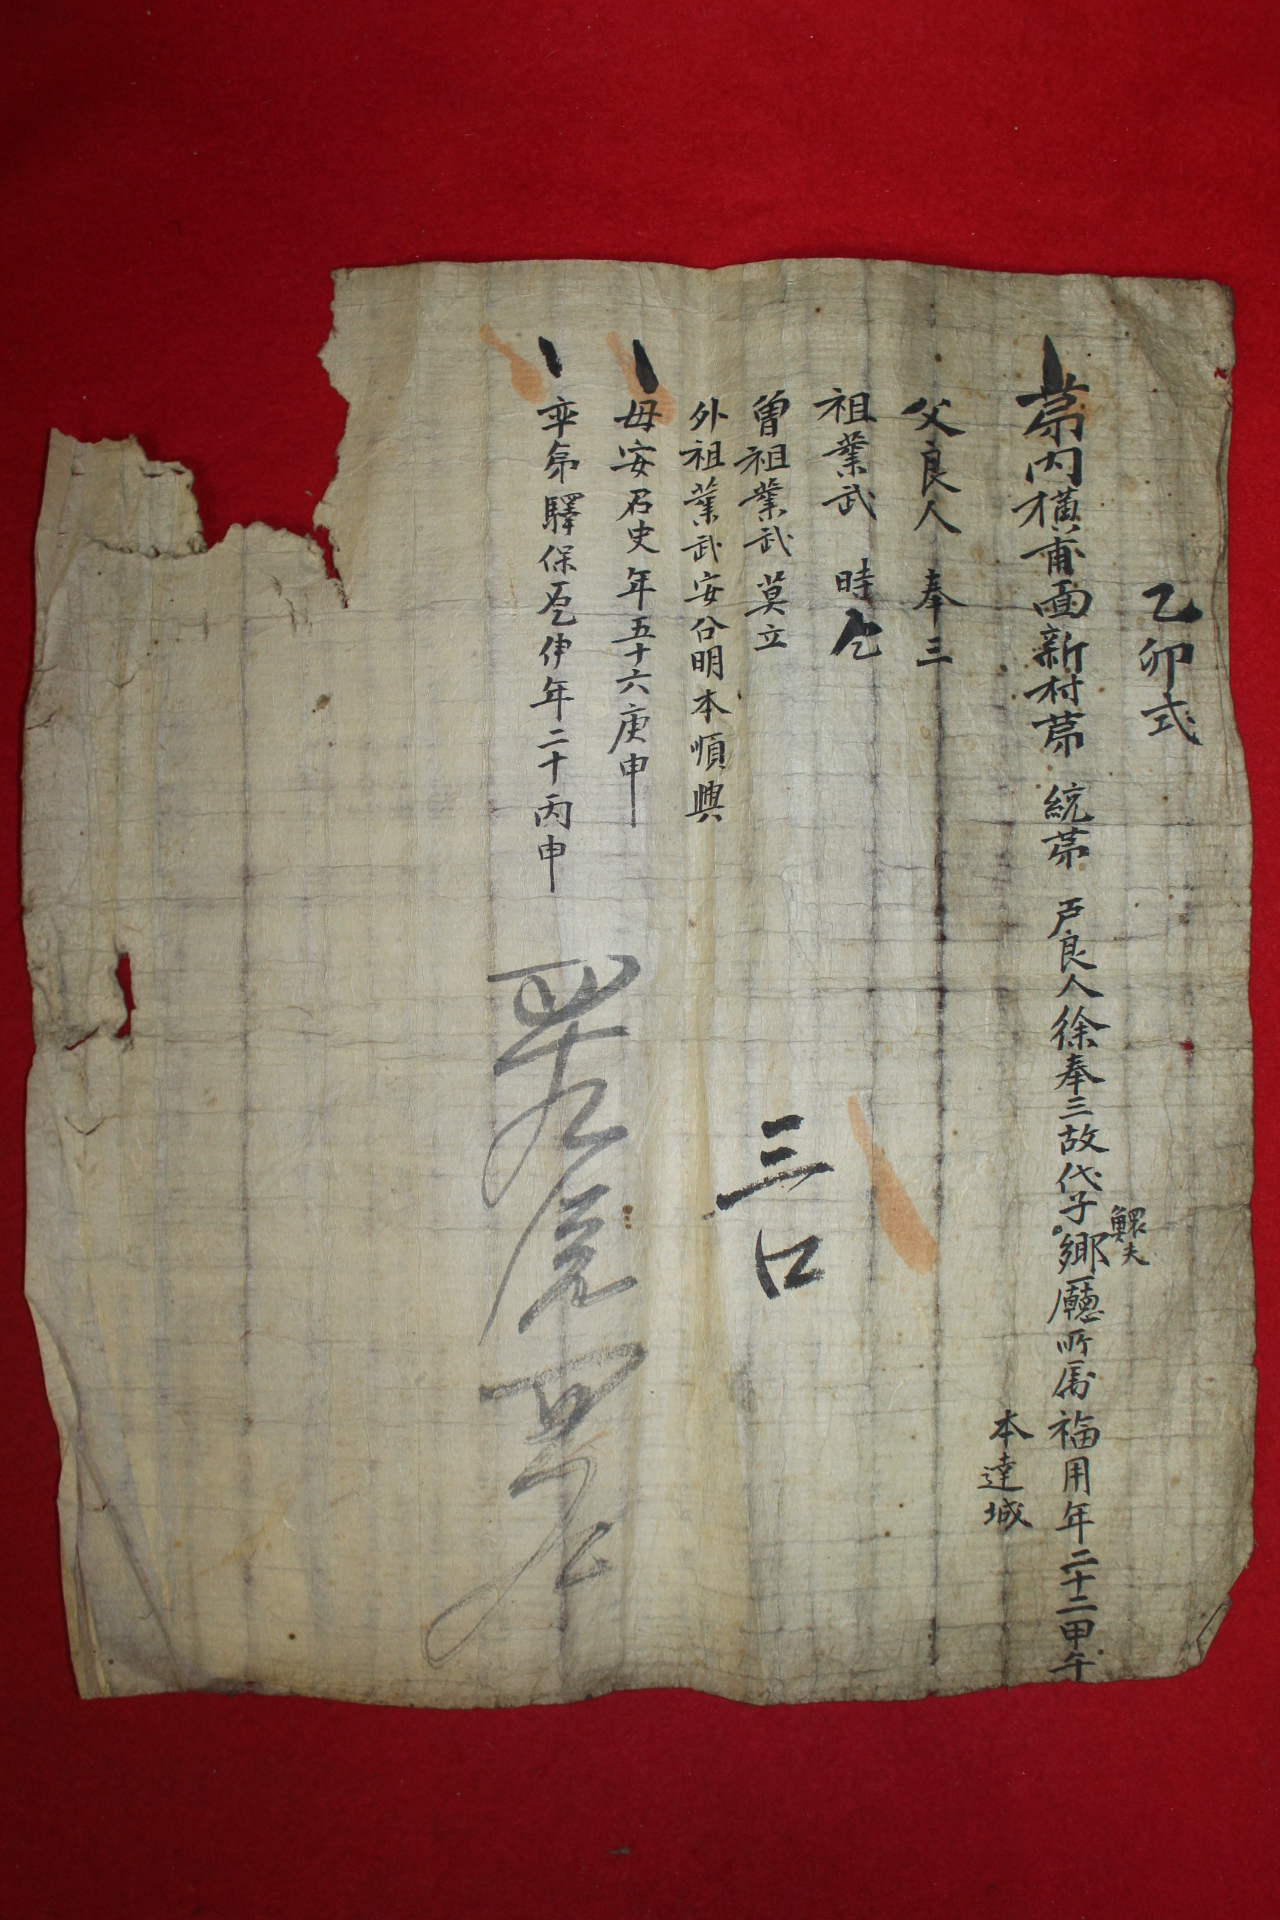 乙卯式
第內橫甫面新村第 統第 戶良人徐奉三故代子鄕廳所屬福用年二十二甲午
鰥夫
本達城
父良人 奉三
祖業武 時
曾祖業武 莫立
外祖業武安公明本順興
母安召史年五十六庚申
率弟驛保 年二十丙申
三口